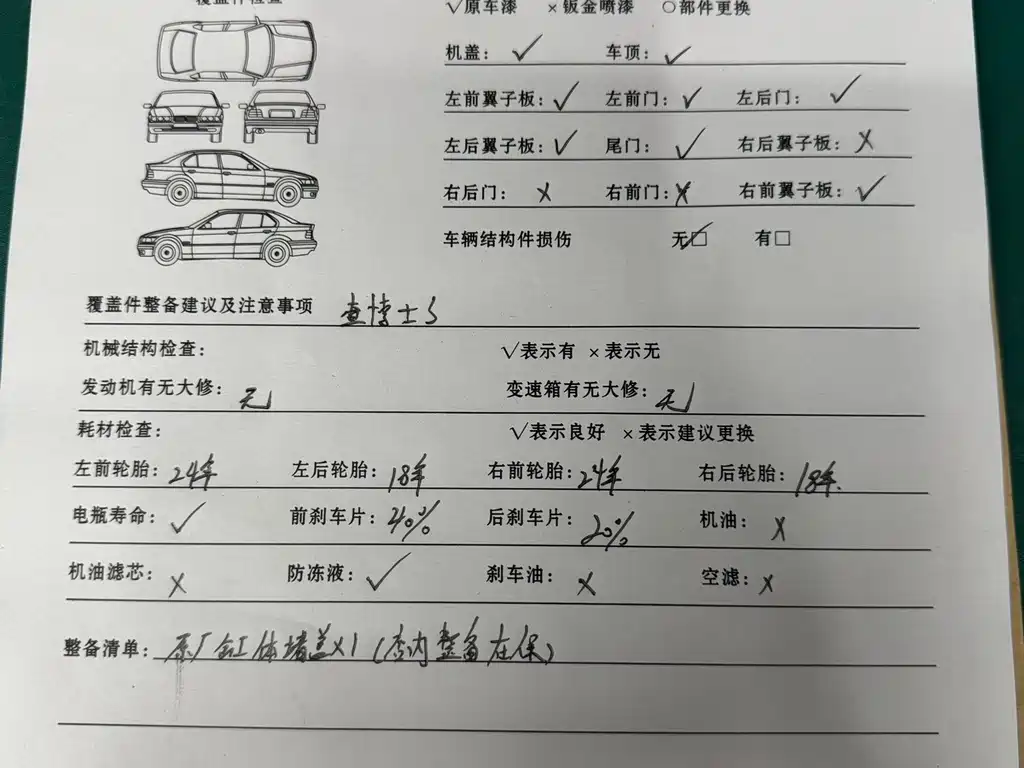 覆盖件检查
√原车漆 ×钣金喷漆 ○部件更换
机盖：✓ 车顶：✓
左前翼子板：✓ 左前门：✓ 左后门：✓
左后翼子板：✓ 尾门：✓ 右后翼子板：×
右后门：× 右前门：× 右前翼子板：✓
车辆结构件损伤 无☑ 有□
覆盖件整备建议及注意事项 查博士S
机械结构检查： √表示有 ×表示无
发动机有无大修：无 变速箱有无大修：无
耗材检查： √表示良好 ×表示建议更换
左前轮胎：24年 左后轮胎：18年 右前轮胎：24年 右后轮胎：18年.
电瓶寿命：✓ 前刹车片：40% 后刹车片：20% 机油：×
机油滤芯：× 防冻液：✓ 刹车油：× 空滤：×
整备清单：原厂缸体堵盖X1（店内整备在保）